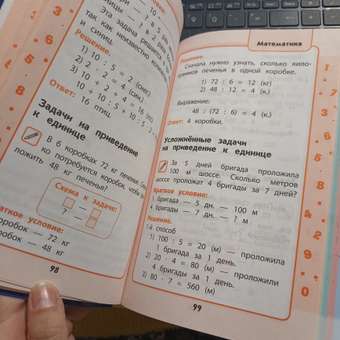 Эта задача решается
так, как неизвестно
и синиц.
Решение.
1) 10 : 5 = 2 (сниг.)
2) 2 · 2 = 4 (син.)
3) 10 + 2 + 4 =
Ответ:
10 + 10 : 5 + 10 : 5 · 2
16 птиц.
Задачи на приведение
к единице
В 6 коробках 72 кг печенья.
ко потребуется коробок, чтобы
ложить 48 кг печенья?
Схема к задаче:
?
раткое условие:
робок — 72 кг
робок — 48 кг
98
Математика
Сначала нужно узнать, сколько кило-
граммов печенья в одной коробке.
1) 72 : 6 = 12 (кг)
2) 48 : 12 = 4 (к.)
Выражение:
48 : (72 : 6) = 4 (к.)
Ответ: 4 коробки.
Усложнённые задачи
на приведение к единице
За 5 дней бригада проложила
100 м шоссе. Сколько метров
шоссе проложат 4 бригады за 7 дней?
Краткое условие:
1 бригада — 5 дн. — 100 м
4 бригады — 7 дн. — ? м
Решение.
1-й способ
1) 100 : 5 = 20 (м) — проложила
1 бригада за 1 день.
2) 20 · 4 = 80 (м) — проложили
4 бригады за 1 день.
3) 80 · 7 = 560 (м)
99